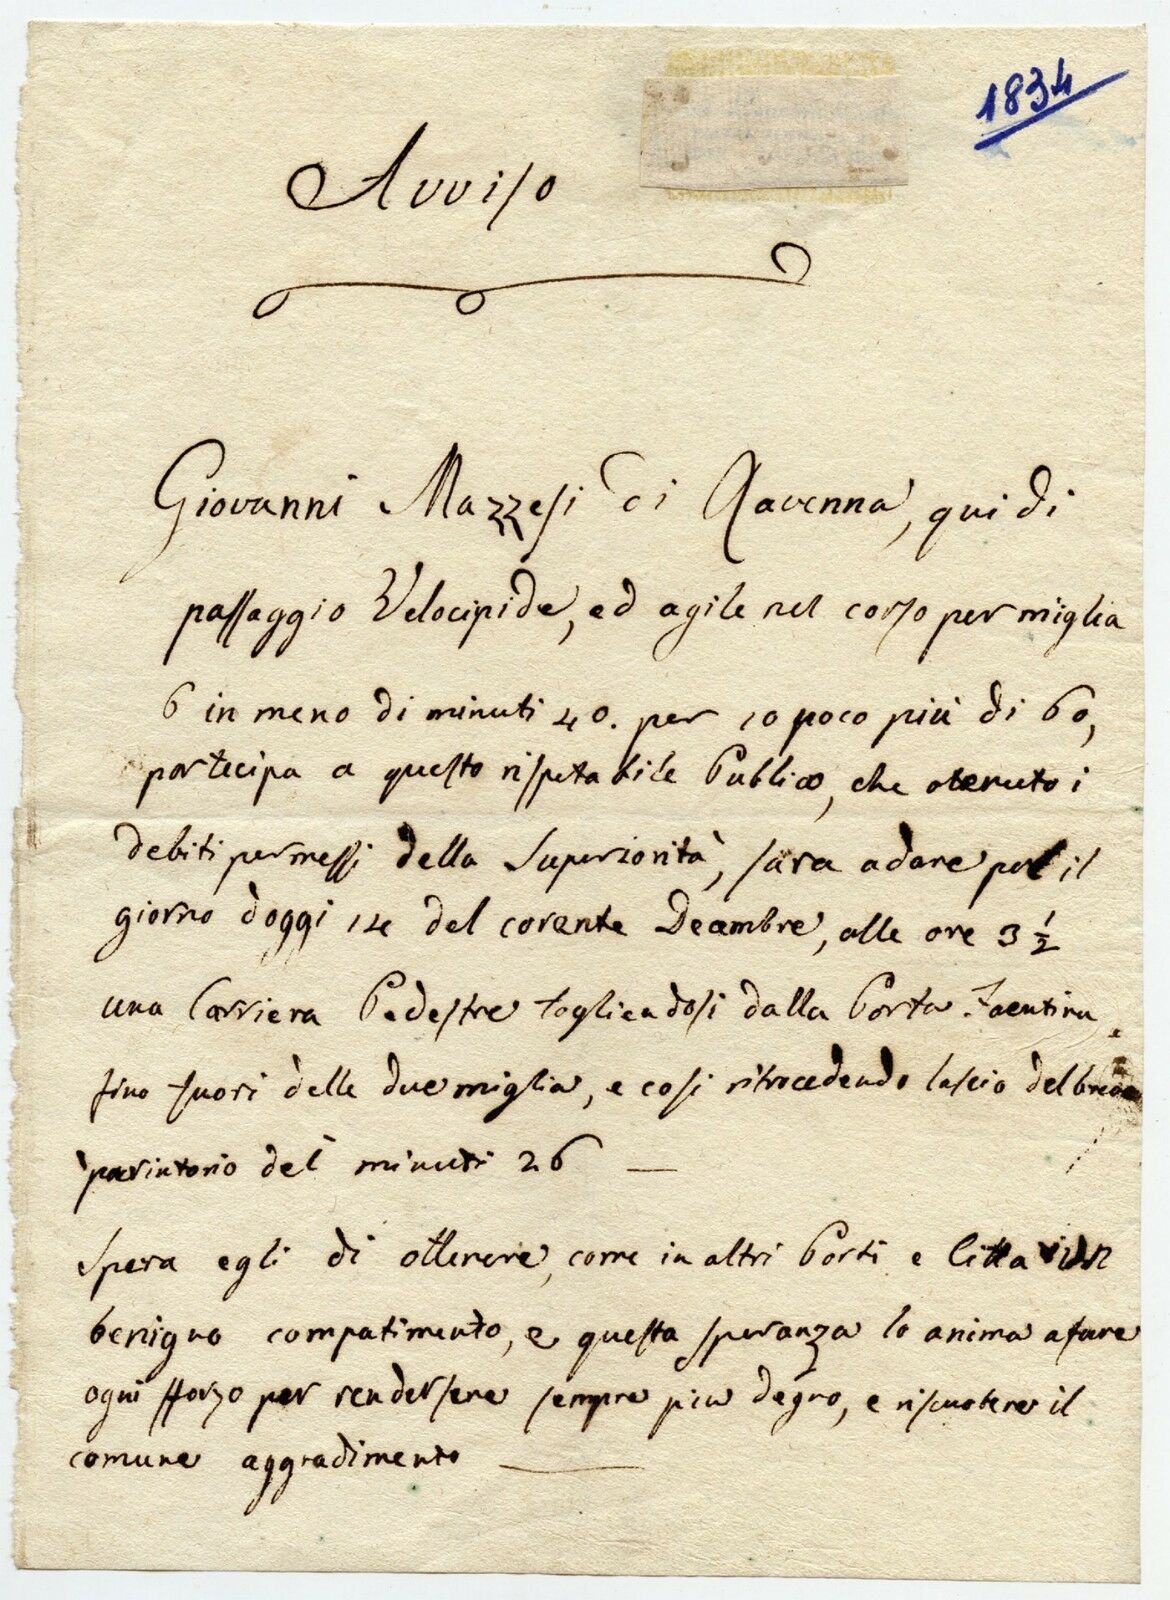 1834
Avviso
Giovanni Mazzesi di Ravenna, qui di
passaggio Velocipide, ed agile nel corso per miglia
6 in meno di minuti 40. per 10 poco più di 60,
partecipa a questo rispetabile Publico, che otenuto i
debiti permessi della Superiorità, sara a dare per il
giorno d'oggi 14 del corente Decembre, alle ore 3 1/2
una Carriera Pedestre togliendosi dalla Porta Faentina
fino fuori delle due miglia, e cosi ritrocedendo lascio del breve
perintorio del minuti 26 —
Spera egli di ottenere, come in altri Porti e Citta un
benigno compatimento, e questa speranza lo anima a fare
ogni sforzo per rendersene sempre piu degno, e riscuotere il
comune aggradimento —